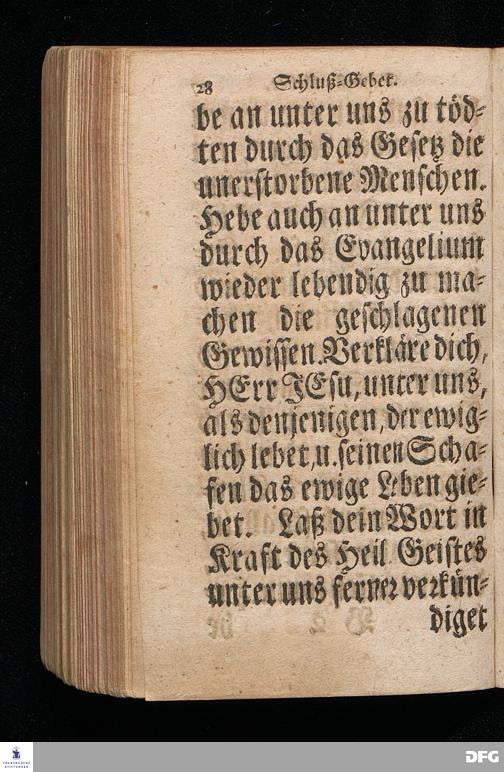 28 Schluß-Gebet.
be an unter uns zu töd-
ten durch das Gesetz die
unerstorbene Menschen.
Hebe auch an unter uns
durch das Evangelium
wieder lebendig zu ma-
chen die geschlagenen
Gewissen. Verkläre dich,
HErr JEsu, unter uns,
als denjenigen, der ewig-
lich lebet, u. seinen Scha-
fen das ewige Leben gie-
bet. Laß dein Wort in
Kraft des Heil Geistes
unter uns ferner verkün-
diget
FRANCKESCHE
STIFTUNGEN
DFG